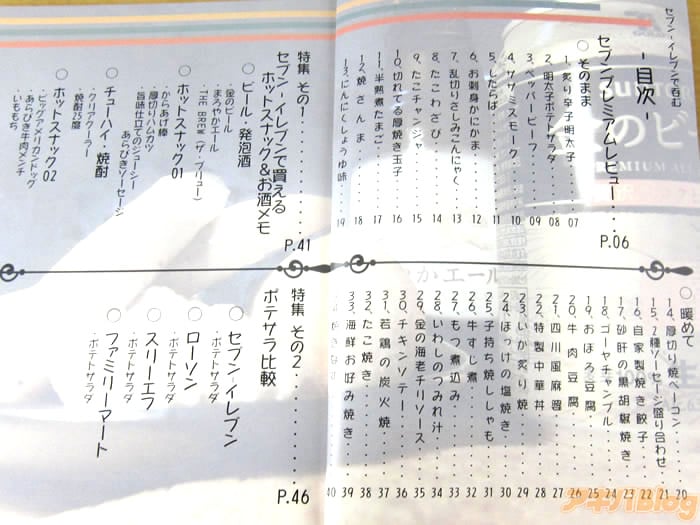 セブン-イレブンで呑む
-目次-
セブンプレミアムレビュー・・・・・P.06
○そのまま
1、炙り辛子明太子・・・・07
2、明太子ポテトサラダ・・・08
3、ペッパービーフ・・・・09
4、ササミスモーク・・・・10
5、したらば・・・・・・11
6、お刺身かにかま・・・・12
7、乱切りさしみこんにゃく・・・13
8、たこわさび・・・・・14
9、たこチャンジャ・・・・15
10、切れてる厚焼き玉子・・・16
11、半熟煮たまご・・・・17
12、焼さんま・・・・・18
13、にんにくしょうゆ味・・・19
○暖めて
14、厚切り焼ベーコン・・・20
15、2種ソーセージ盛り合わせ・21
16、自家製焼き餃子・・・・22
17、砂肝の黒胡椒焼き・・・23
18、ゴーヤチャンプル・・・24
19、おぼろ豆腐・・・・・25
20、牛肉豆腐・・・・・26
21、四川風麻婆・・・・・27
22、特製中華丼・・・・・28
23、いか炙り焼・・・・・29
24、ほっけの塩焼き・・・・30
25、子持ち焼ししゃも・・・31
26、牛すじ煮・・・・・32
27、もつ煮込み・・・・・33
28、いわしのつみれ汁・・・34
29、金の海老チリソース・・・35
30、チキンソテー・・・・36
31、若鶏の炭火焼・・・・37
32、たこ焼き・・・・・38
33、海鮮お好み焼き・・・・39
40
特集 その1・・・・・・P.41
セブン-イレブンで買える
ホットスナック&お酒メモ
○ビール・発泡酒
・金のビール
・まろやかエール
・THE BREW(ザ・ブリュー)
○ホットスナック01
・からあげ棒
・厚切りハムカツ
・旨味仕立てのジューシー
あらびきソーセージ
○チューハイ・焼酎
・クリアクーラー
・焼酎25度
○ホットスナック02
・ビッグアメリカンドッグ
・あらびき牛肉メンチ
・いももち
特集 その2・・・・・・P.46
ポテサラ比較
○セブン-イレブン
・ポテトサラダ
○ローソン
・ポテトサラダ
○スリーエフ
・ポテトサラダ
○ファミリーマート
・ポテトサラダ
まろやかエール
アキバBlog